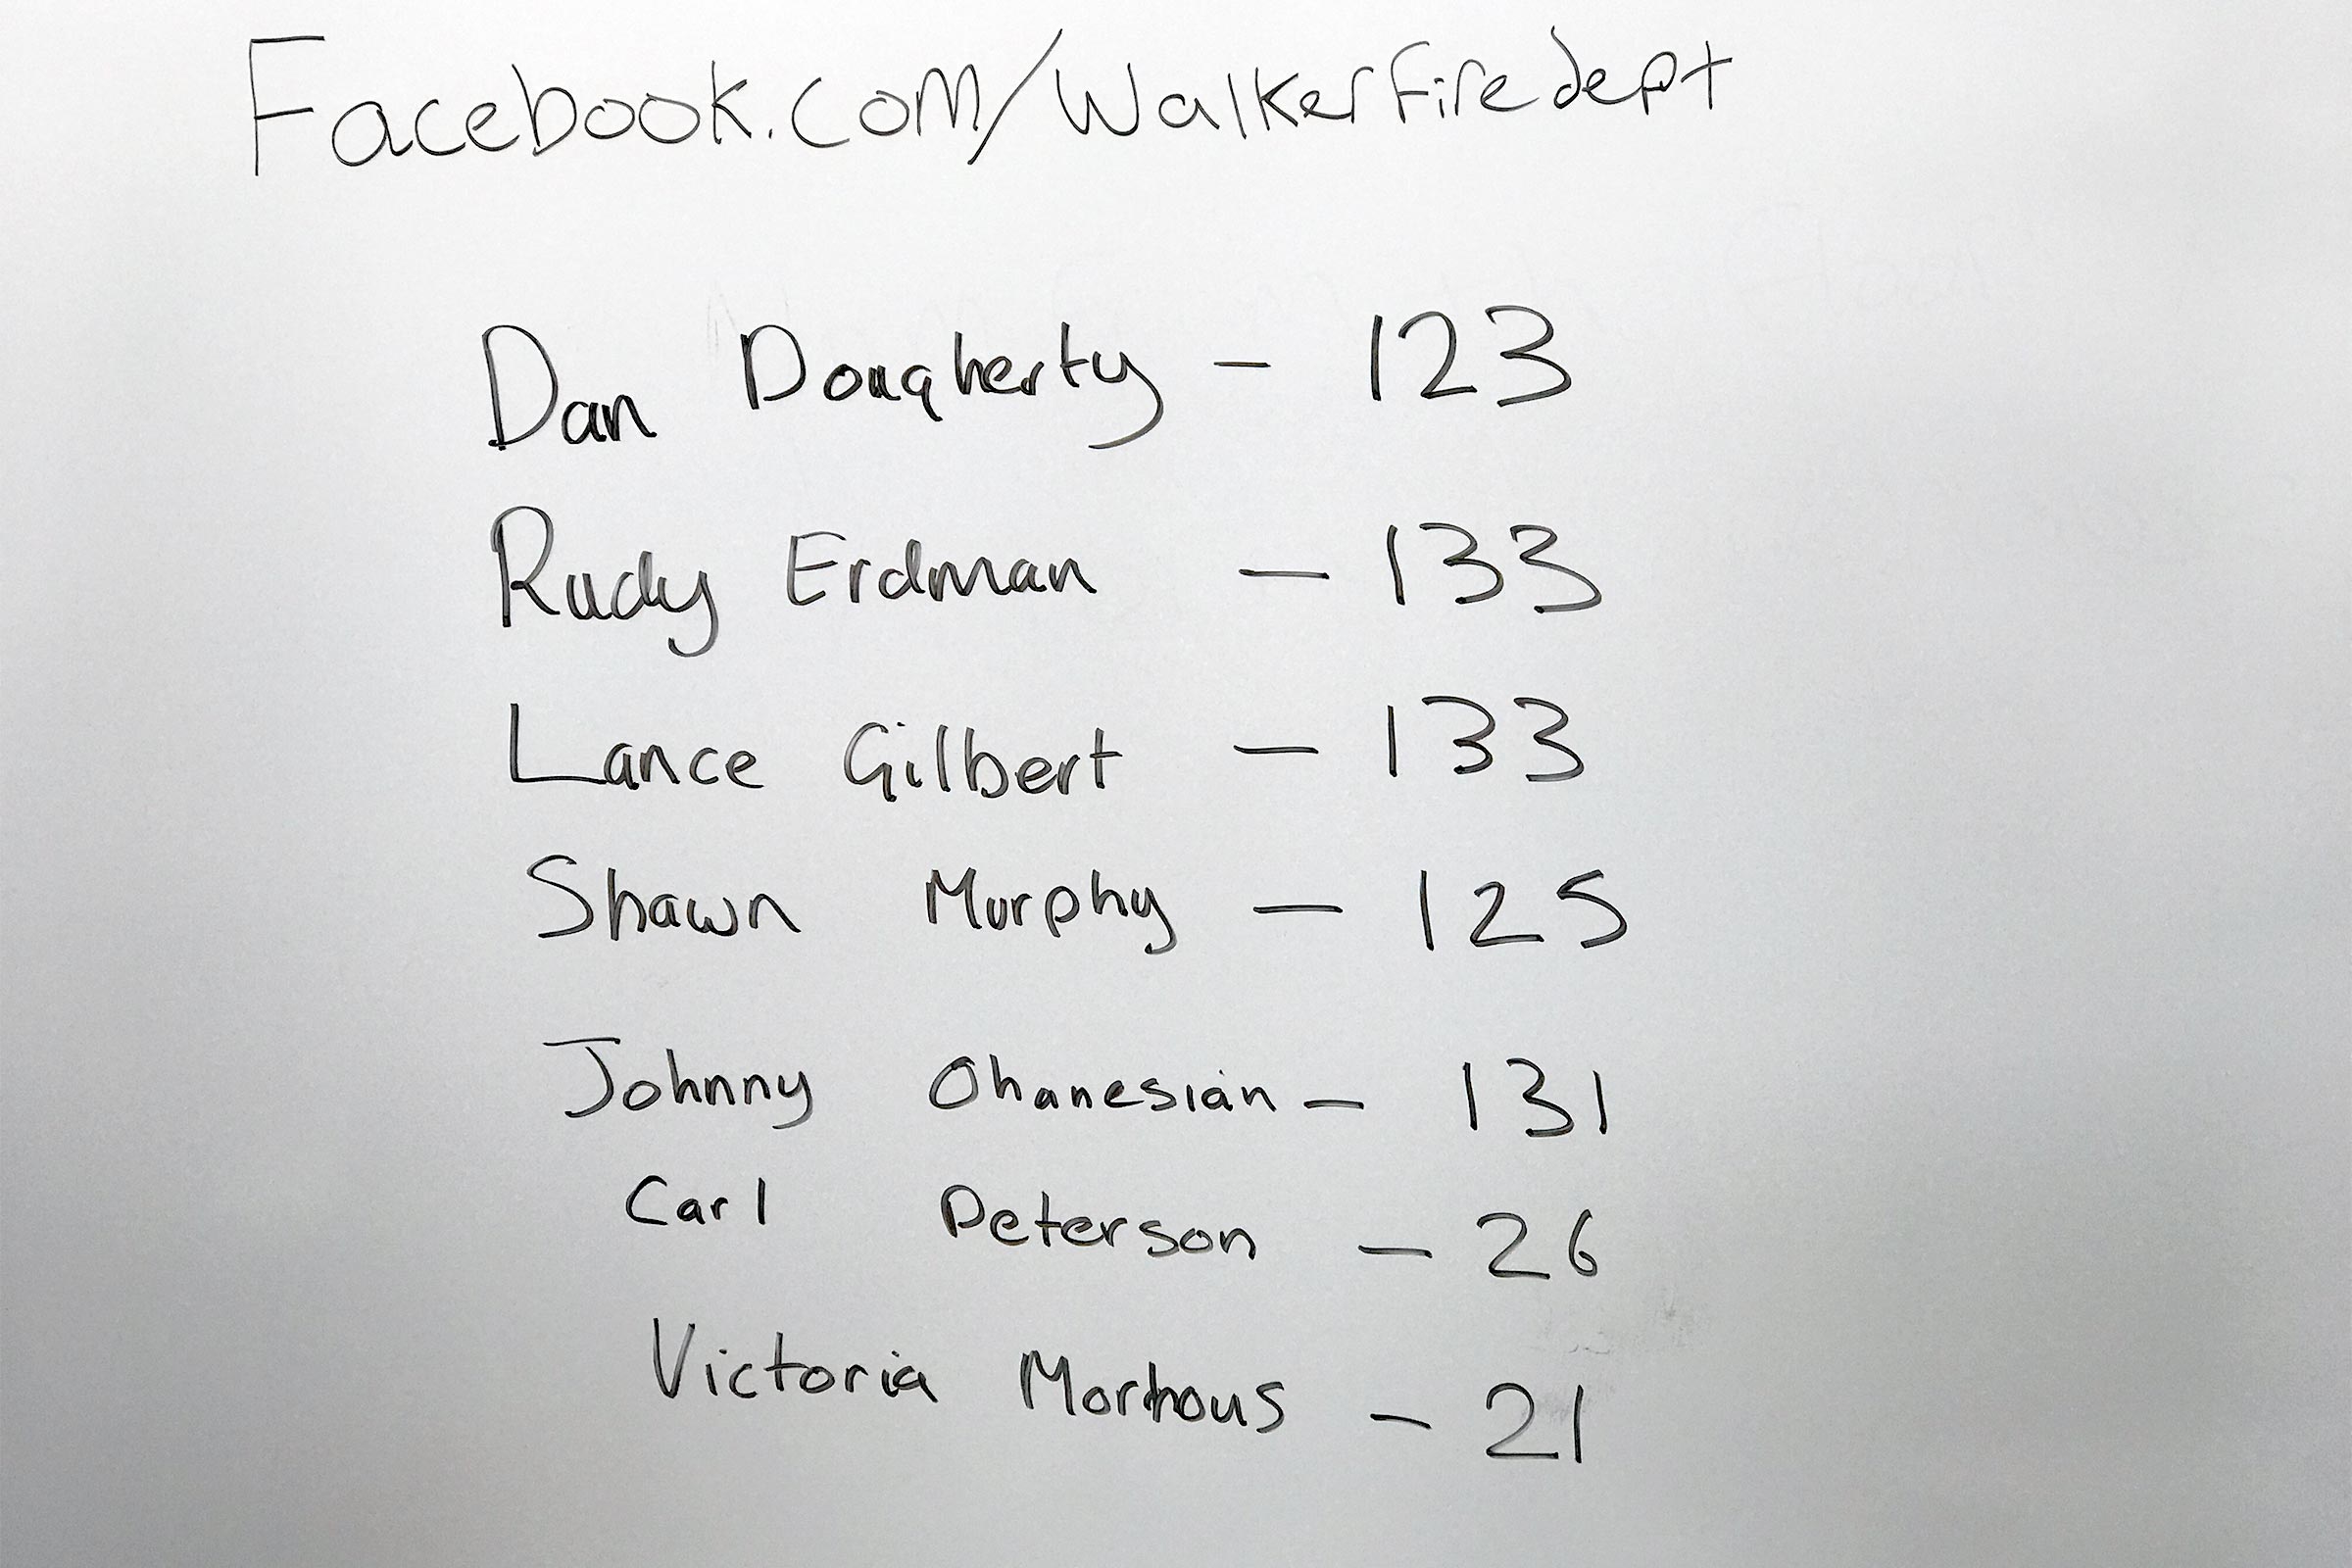 Facebook.com/Walkerfiredept
Dan Dougherty - 123
Rudy Erdman - 133
Lance Gilbert - 133
Shawn Murphy - 125
Johnny Ohanesian - 131
Carl Peterson - 26
Victoria Morhous - 21